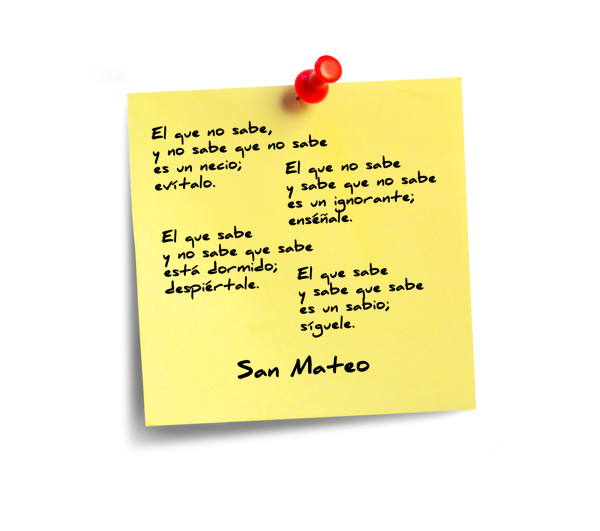 El que no sabe,
y no sabe que no sabe
es un necio;
evítalo.
El que no sabe
y sabe que no sabe
es un ignorante;
enséñale.
El que sabe
y no sabe que sabe
está dormido;
despiértale.
El que sabe
y sabe que sabe
es un sabio;
síguele.
San Mateo